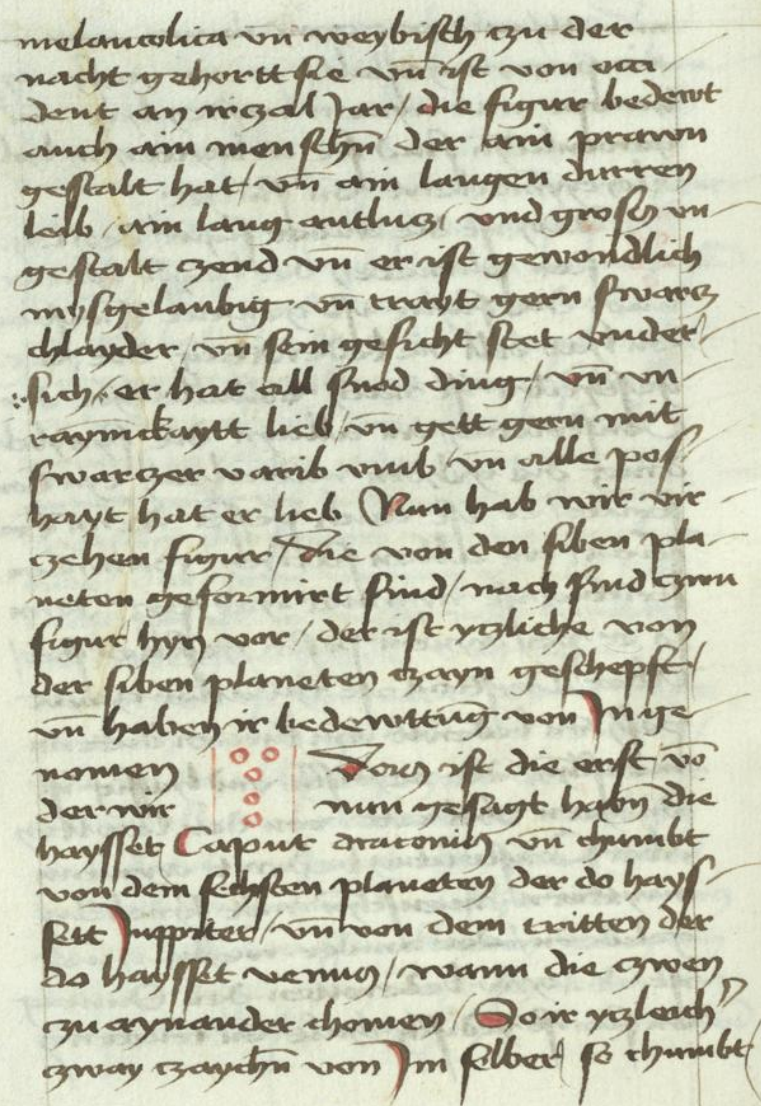 melancolica vn̄ weybisch czu der
nacht gehortt sie vn̄ ist von occi
dent an ir czal Jar / die figur bedewt
auch ain menschn̄ der ain prawn
gestalt hat / vn̄ ain langen durren
leib / ain lang antlucz / vnd gross vn
gestalt czend vn̄ er ist gewondlich
mysgelaubig vn̄ trayt gern swarcz
chlayder / vn̄ sein gesicht stet vnder
sich / er hat all snod ding / vn̄ vn
raynickaytt lieb / vn̄ gett gern mit
swarczer varib vmb / vn̄ alle pos
hayt hat er lieb Nun hab wir vir
czehen figur / die von den siben pla
neten geformirt sind / nach sind czwu
figur hyn vor / der ist yczliche von
der siben planeten czayn geschepft /
vn̄ haben ir bedewttūg von In ge
nomen Docz ist die erst / vō
der wir nun gesagt habn̄ die
haysset Caput draconis vn̄ chumbt
von dem sechsten planeten der do hays
sett Juppiter / vn̄ von dem tritten der
do haysset venus / wann die czwen
czu aynander chomen / So ir yczleich
czway czaychn̄ von Im selber / so chumbt